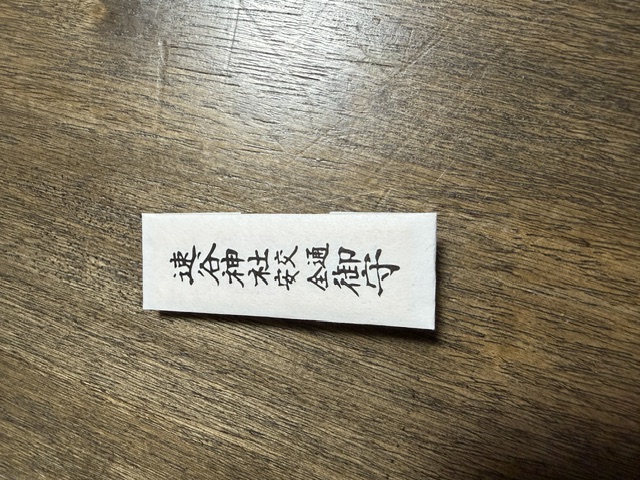 速谷神社
交通
安全
御守